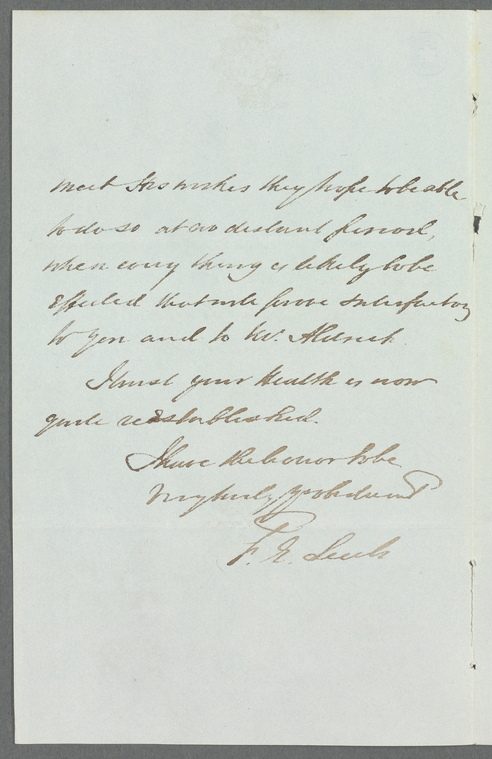 meet his wishes they hope to be able
to do so at no distant period,
when every thing is likely to be
effected that will prove satisfactory
to you and to Mr.
I trust your Health is now
quite reestablished.
I have the honor to be
F.